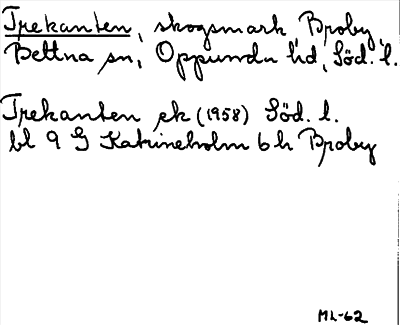 Trekanten, skogsmark, Broby,
Bettna sn, Oppunda hd, Söd. l.
Trekanten ek (1958) Söd. l.
bl 9 G Katrineholm 6 h Broby
ML-62